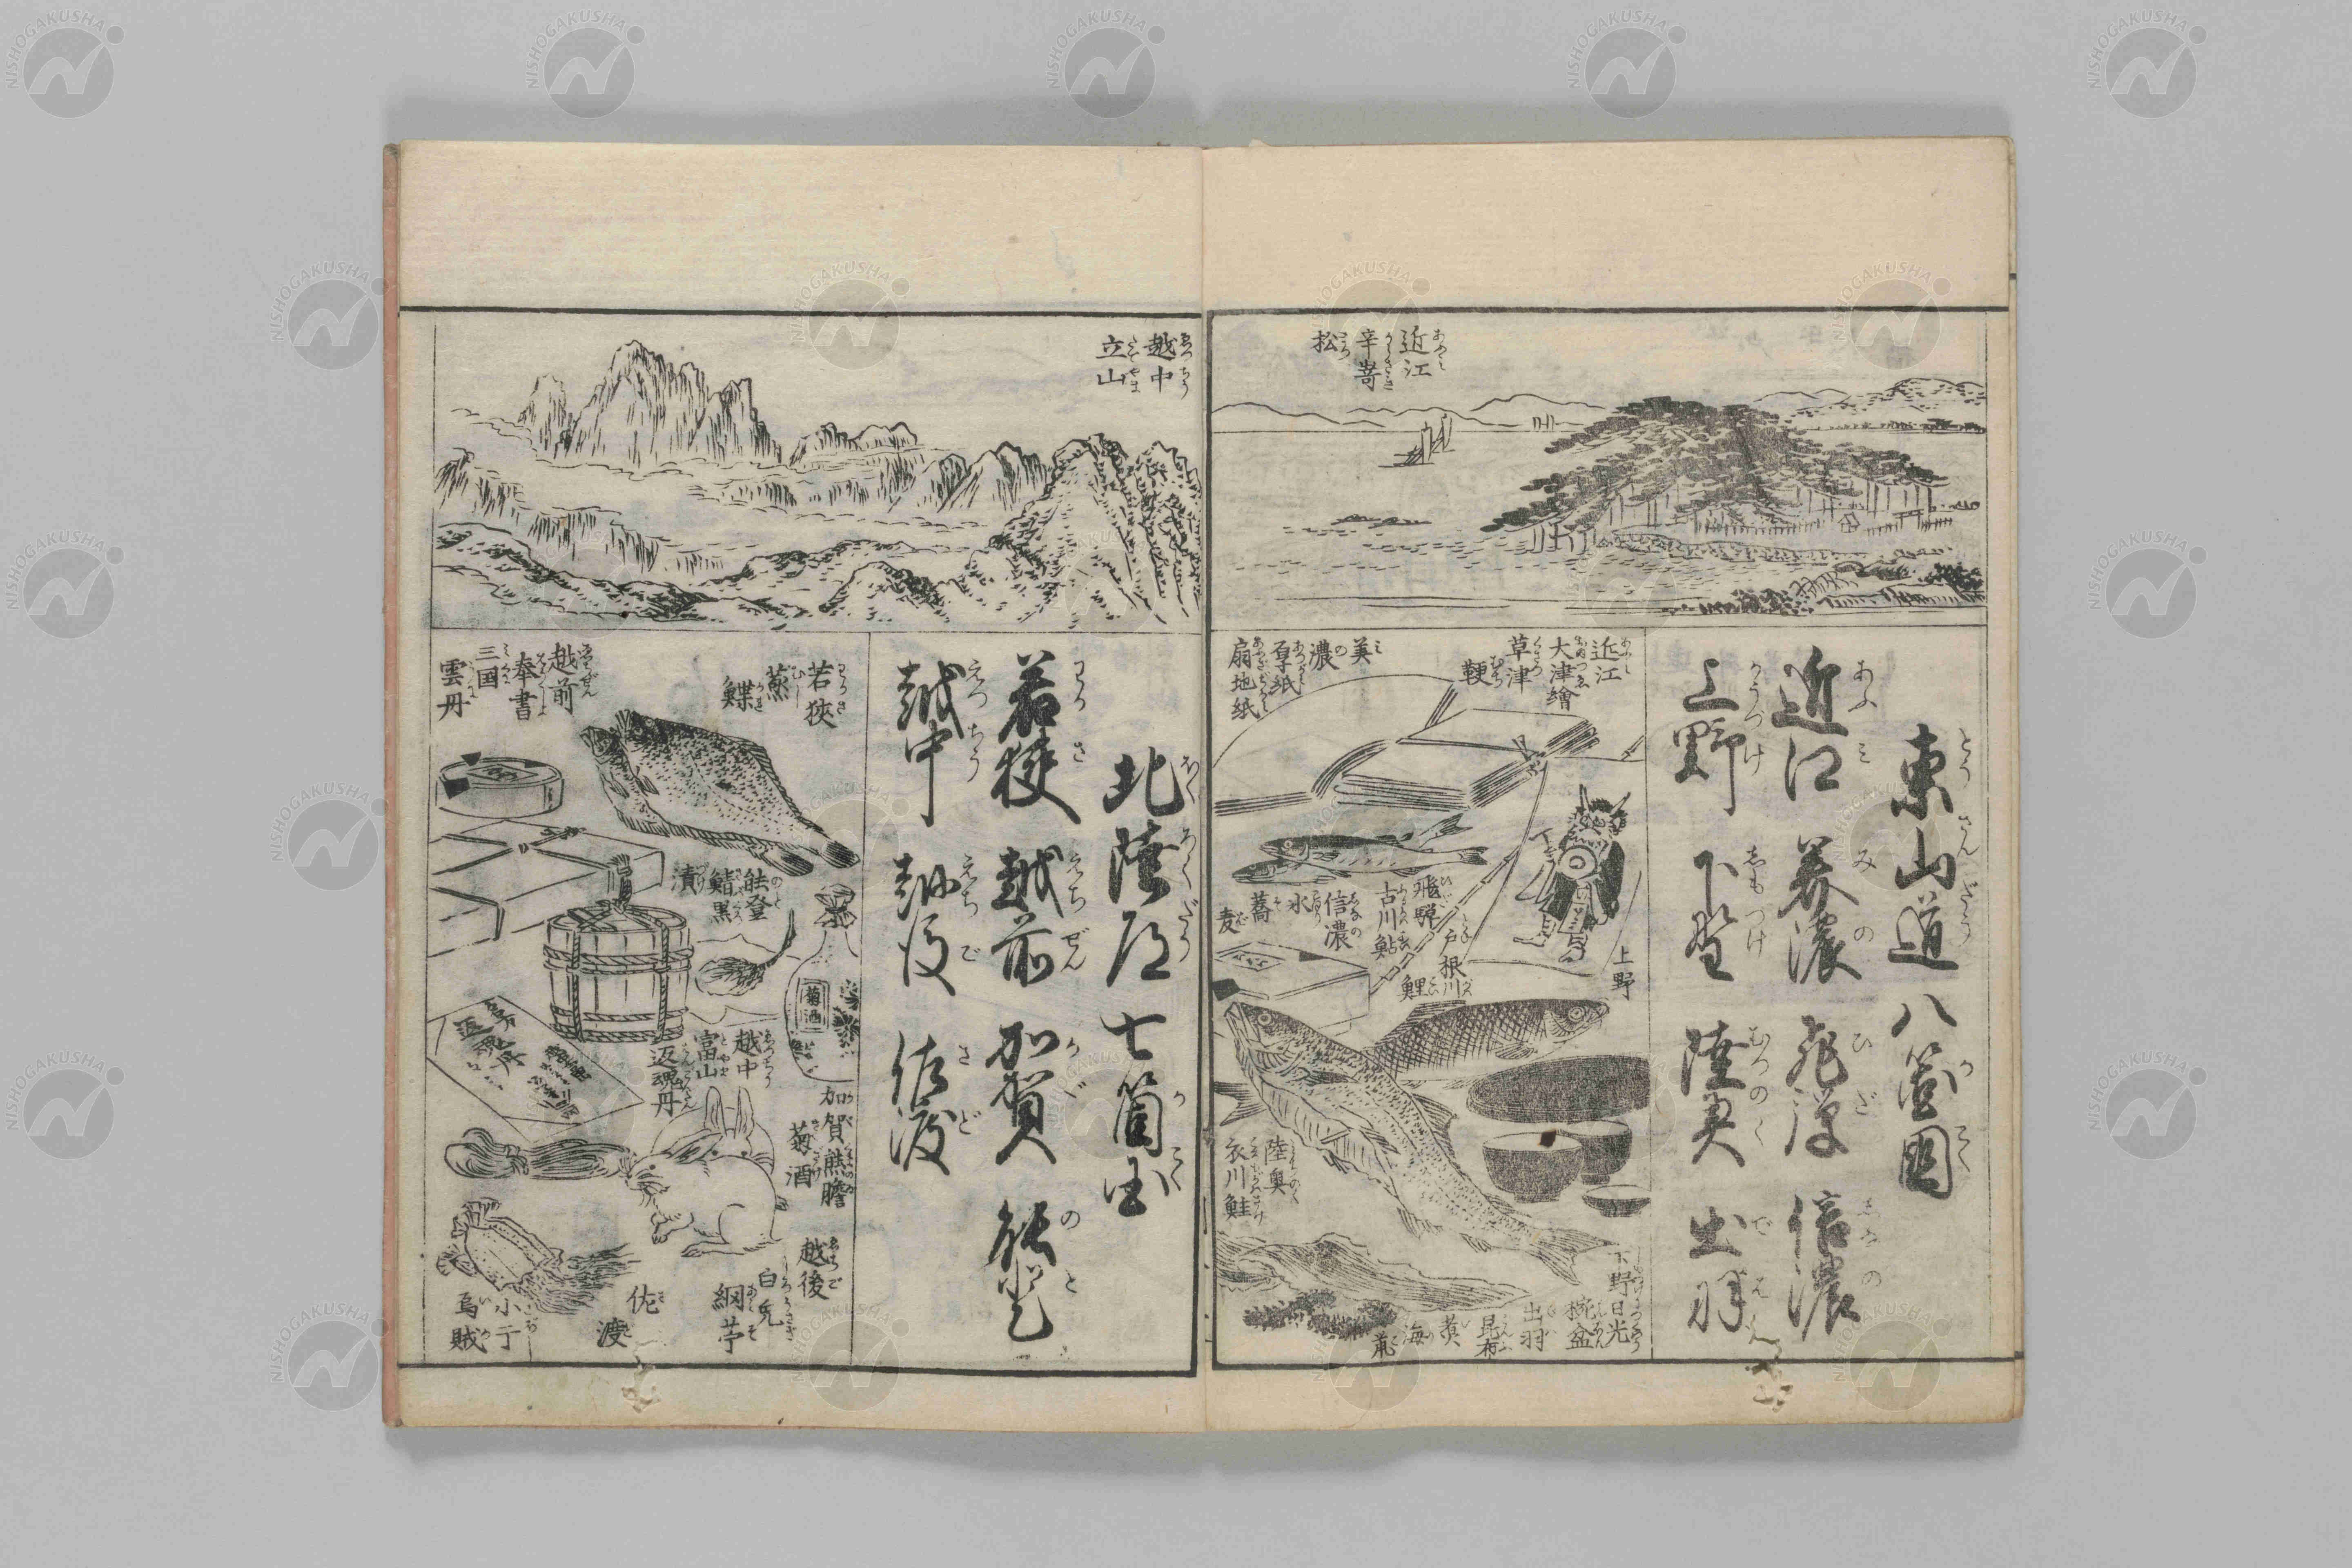 近江
辛嵜
松
東山道八箇國
近江 美濃 飛騨 信濃
上野 下野 陸奥 出羽
近江
大津繪
草津
鞭
美濃
厚紙
扇地紙
飛騨
古川鮎
信濃
氷
蕎麦
上野
戸根川
鯉
下野日光
椀盆
出羽
昆布
海
陸奥
衣川鮭
越中
立山
北陸道七箇国
若狭 越前 加賀 能登
越中 越後 佐渡
若狭
蒸
鰈
越前
奉書
三国
雲丹
能登
鯖黒
漬
菊酒
越中
富山
返魂丹
加賀熊膽
菊酒
越後
白兎
綱苧
佐渡
小丁
烏賊
NISHOGAKUSHA